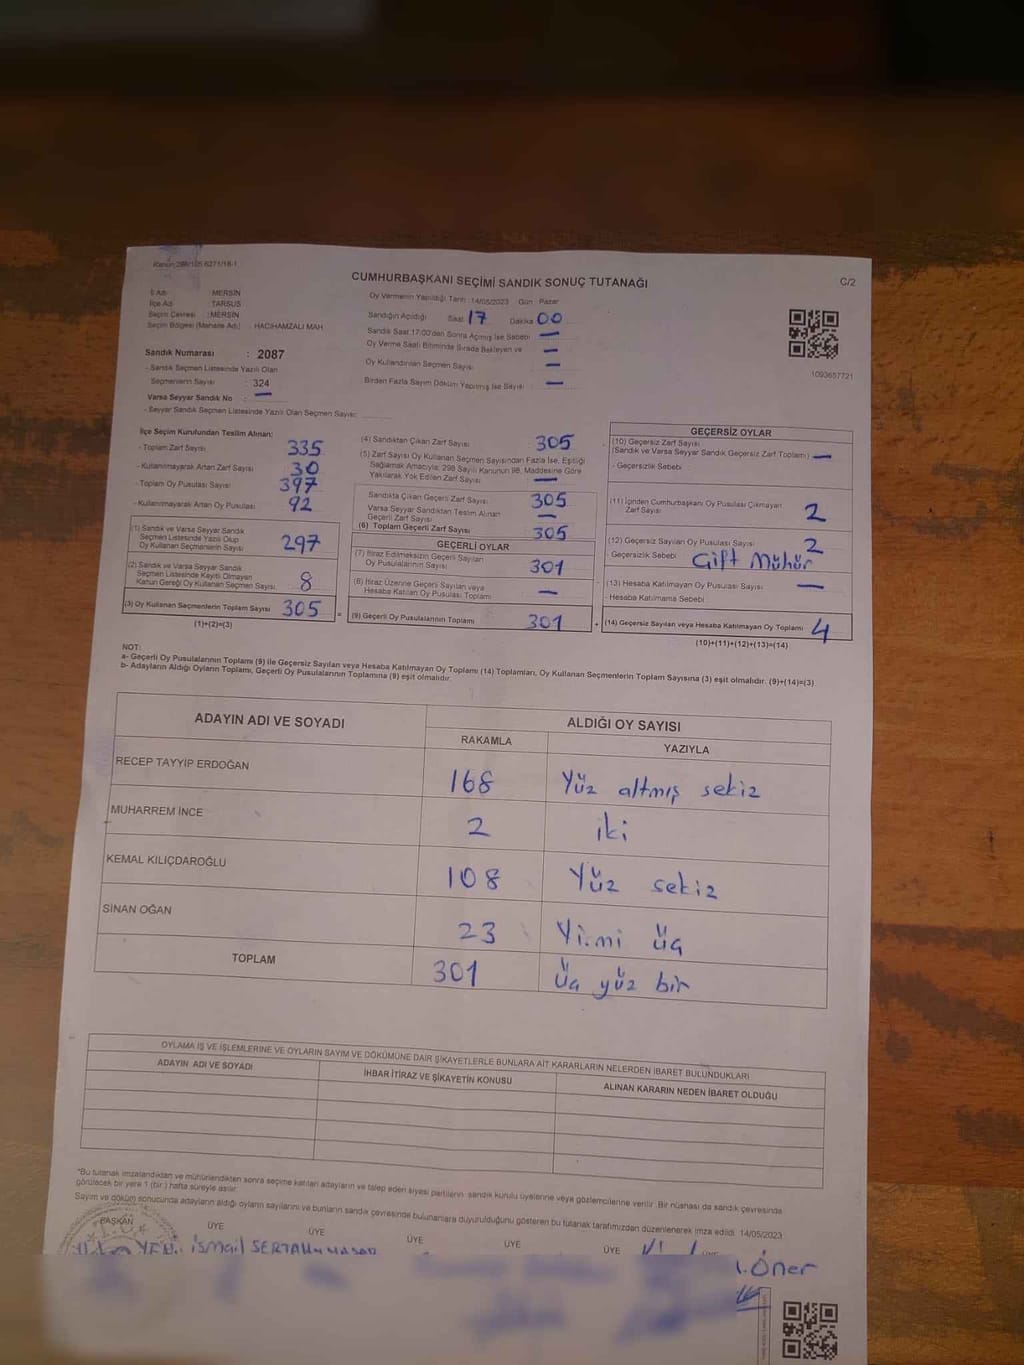 Kanun:298/105 6271/18-1
CUMHURBAŞKANI SEÇİMİ SANDIK SONUÇ TUTANAĞI
C/2
İl Adı : MERSİN
İlçe Adı : TARSUS
Seçim Çevresi : MERSİN
Seçim Bölgesi (Mahalle Adı) : HACIHAMZALI MAH
Sandık Numarası : 2087
- Sandık Seçmen Listesinde Yazılı Olan
Seçmenlerin Sayısı : 324
Varsa Seyyar Sandık No : —
- Seyyar Sandık Seçmen Listesinde Yazılı Olan Seçmen Sayısı:
Oy Vermenin Yapıldığı Tarih : 14/05/2023 Gün : Pazar
Sandığın Açıldığı Saat 17 Dakika 00
Sandık Saat 17:00'den Sonra Açılmış İse Sebebi : —
Oy Verme Saati Bitiminde Sırada Bekleyen ve : —
Oy Kullandırılan Seçmen Sayısı : —
Birden Fazla Sayım Döküm Yapılmış İse Sayısı : —
1093657721
İlçe Seçim Kurulundan Teslim Alınan:
- Toplam Zarf Sayısı 335
- Kullanılmayarak Artan Zarf Sayısı 30
- Toplam Oy Pusulası Sayısı 397
- Kullanılmayarak Artan Oy Pusulası 92
(1) Sandık ve Varsa Seyyar Sandık
Seçmen Listesinde Yazılı Olup
Oy Kullanan Seçmenlerin Sayısı 297
(2) Sandık ve Varsa Seyyar Sandık
Seçmen Listesinde Kayıtlı Olmayan
Kanun Gereği Oy Kullanan Seçmen Sayısı 8
(3) Oy Kullanan Seçmenlerin Toplam Sayısı 305 =
(1)+(2)=(3)
(4) Sandıktan Çıkan Zarf Sayısı 305
(5) Zarf Sayısı Oy Kullanan Seçmen Sayısından Fazla İse, Eşitliği
Sağlamak Amacıyla; 298 Sayılı Kanunun 98. Maddesine Göre
Yakılarak Yok Edilen Zarf Sayısı —
Sandıkta Çıkan Geçerli Zarf Sayısı 305
Varsa Seyyar Sandıktan Teslim Alınan
Geçerli Zarf Sayısı —
(6) Toplam Geçerli Zarf Sayısı 305
GEÇERLİ OYLAR
(7) İtiraz Edilmeksizin Geçerli Sayılan
Oy Pusulalarının Sayısı 301
(8) İtiraz Üzerine Geçerli Sayılan veya
Hesaba Katılan Oy Pusulası Toplamı —
(9) Geçerli Oy Pusulalarının Toplamı 301 +
GEÇERSİZ OYLAR
(10) Geçersiz Zarf Sayısı
(Sandık ve Varsa Seyyar Sandık Geçersiz Zarf Toplamı) —
- Geçersizlik Sebebi
(11) İçinden Cumhurbaşkanı Oy Pusulası Çıkmayan
Zarf Sayısı 2
(12) Geçersiz Sayılan Oy Pusulası Sayısı 2
- Geçersizlik Sebebi Çift Mühür
(13) Hesaba Katılmayan Oy Pusulası Sayısı —
Hesaba Katılmama Sebebi
(14) Geçersiz Sayılan veya Hesaba Katılmayan Oy Toplamı 4
(10)+(11)+(12)+(13)=(14)
NOT:
a- Geçerli Oy Pusulalarının Toplamı (9) ile Geçersiz Sayılan veya Hesaba Katılmayan Oy Toplamı (14) Toplamları, Oy Kullanan Seçmenlerin Toplam Sayısına (3) eşit olmalıdır. (9)+(14)=(3)
b- Adayların Aldığı Oyların Toplamı, Geçerli Oy Pusulalarının Toplamına (9) eşit olmalıdır.
ADAYIN ADI VE SOYADI
ALDIĞI OY SAYISI
RAKAMLA YAZIYLA
RECEP TAYYİP ERDOĞAN 168 Yüz altmış sekiz
MUHARREM İNCE 2 iki
KEMAL KILIÇDAROĞLU 108 Yüz sekiz
SİNAN OĞAN 23 Yirmi üç
TOPLAM 301 Üç yüz bir
OYLAMA İŞ VE İŞLEMLERİNE VE OYLARIN SAYIM VE DÖKÜMÜNE DAİR ŞİKAYETLERLE BUNLARA AİT KARARLARIN NELERDEN İBARET BULUNDUKLARI
ADAYIN ADI VE SOYADI İHBAR İTİRAZ VE ŞİKAYETİN KONUSU ALINAN KARARIN NEDEN İBARET OLDUĞU
*Bu tutanak imzalandıktan ve mühürlendikten sonra seçime katılan adayların ve talep eden siyasi partilerin sandık kurulu üyelerine veya gözlemcilerine verilir. Bir nüshası da sandık çevresinde
görülecek bir yere 1 (bir) hafta süreyle asılır.
Sayım ve döküm sonucunda adayların aldığı oyların sayılarını ve bunların sandık çevresinde bulunanlara duyurulduğunu gösteren bu tutanak tarafımızdan düzenlenerek imza edildi. 14/05/2023
BAŞKAN ÜYE ÜYE ÜYE ÜYE ÜYE ÜYE
İsmail
Öner